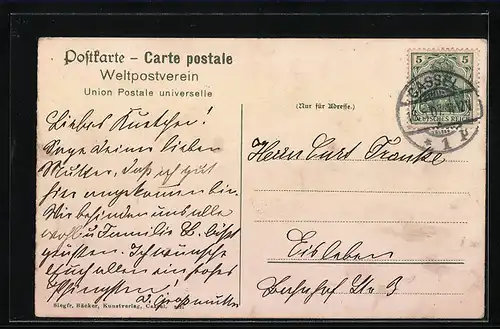 Postkarte – Carte postale
Weltpostverein
Union Postale universelle
(Nur für Adresse.)
5 5
DEUTSCHES REICH
CASSEL
* 1
Liebes Kurtchen!
Sage Deiner lieben
Mutter, daß ich gut
hier angekommen bin.
Wir befinden uns alle
wohl u Familie B. läßt
grüßen. Ich wünsche
Euch allen ein frohes
Pfingsten!
D. Großmutter
Herrn Curt Franke
Eisleben
Bahnhof Str 3
Siegfr. Bäcker, Kunstverlag, Cassel.